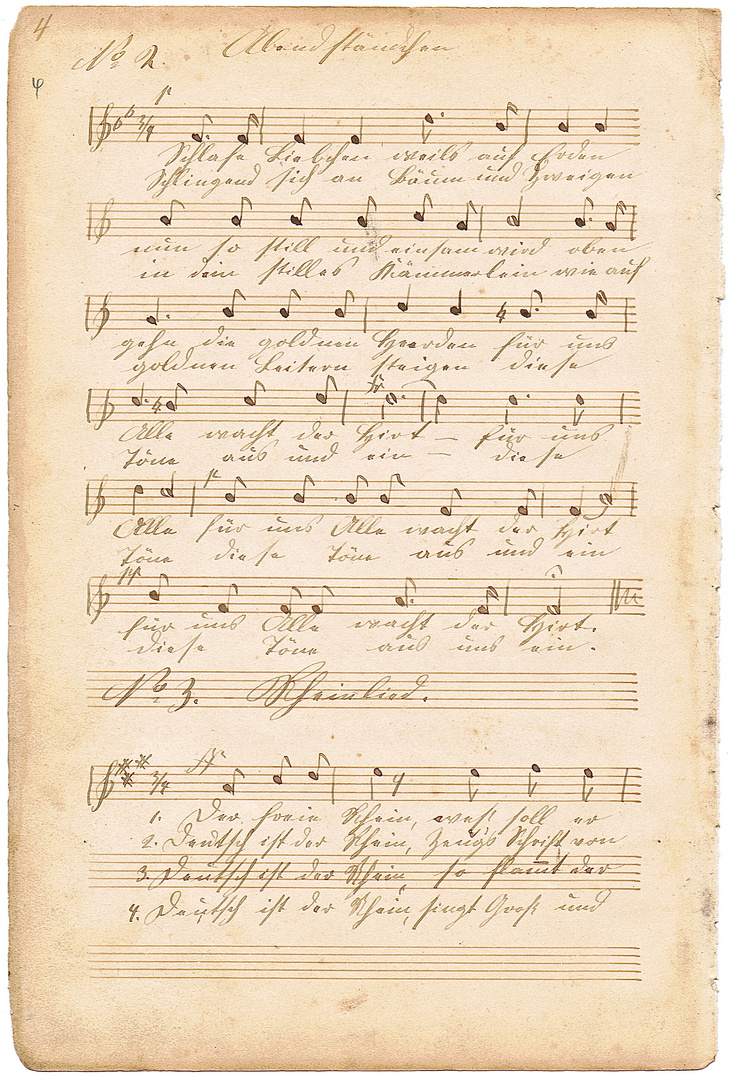 4
No 2. Abendständchen
3/4 p
Schlafe Liebchen weils auf Erden
Schlingend sich an Bäum und Zweigen
nun so still und einsam wird oben
in dein stilles Kämmerlein wie auf
gehn die goldnen Heerden für uns
goldnen Leitern steigen diese
Alle wacht der Hirt – für uns
Töne aus und ein – diese
p
Alle für uns Alle wacht der Hirt
Töne diese Töne aus und ein
pp
für uns Alle wacht der Hirt.
diese Töne aus und ein.
No 3. Rheinlied.
3/4 ff
1. Der freie Rhein, was soll er
2. Deutsch ist der Rhein, zeugts Schrift von
3. Deutsch ist der Rhein, so flammt der
4. Deutsch ist der Rhein, singt Groß und